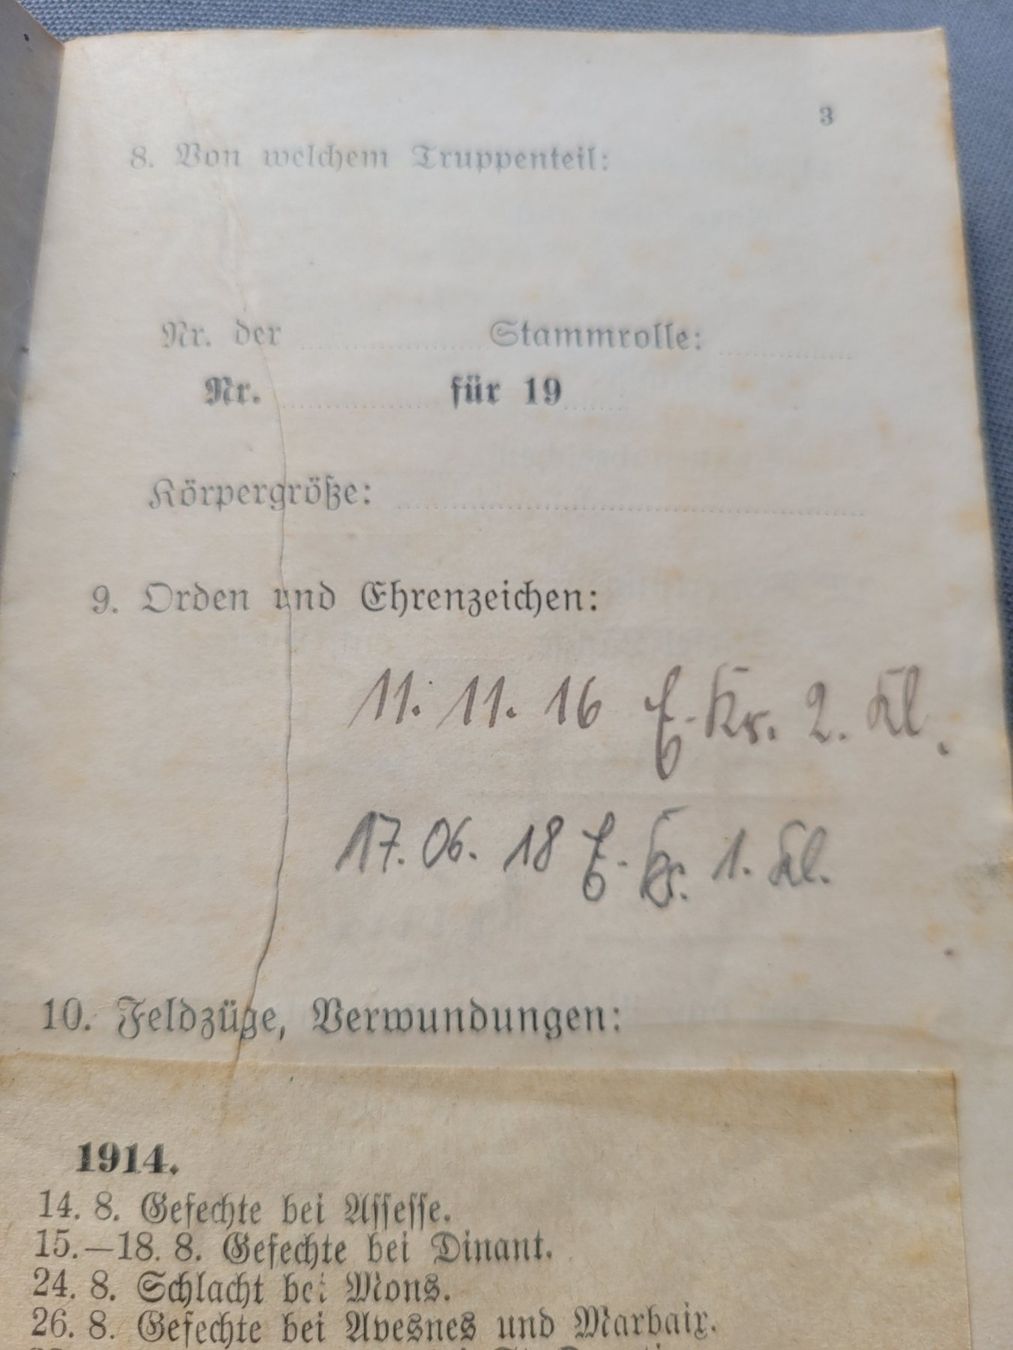 3
8. Von welchem Truppenteil:
Nr. der Stammrolle:
Nr. für 19
Körpergröße:
9. Orden und Ehrenzeichen:
11. 11. 16 E. Kr. 2. Kl.
17. 06. 18 E. Kr. 1. Kl.
10. Feldzüge, Verwundungen:
1914.
14. 8. Gefechte bei Assesse.
15.—18. 8. Gefechte bei Dinant.
24. 8. Schlacht bei Mons.
26. 8. Gefechte bei Avesnes und Marbaix.